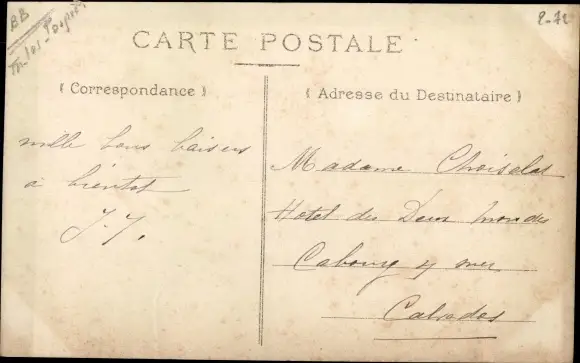 BB
2-72
CARTE POSTALE
( Correspondance )
mille bons baisers
à bientot
J. J.
( Adresse du Destinataire )
Madame Choiselat
Hotel des Deux mondes
Cabourg s/ mer
Calvados